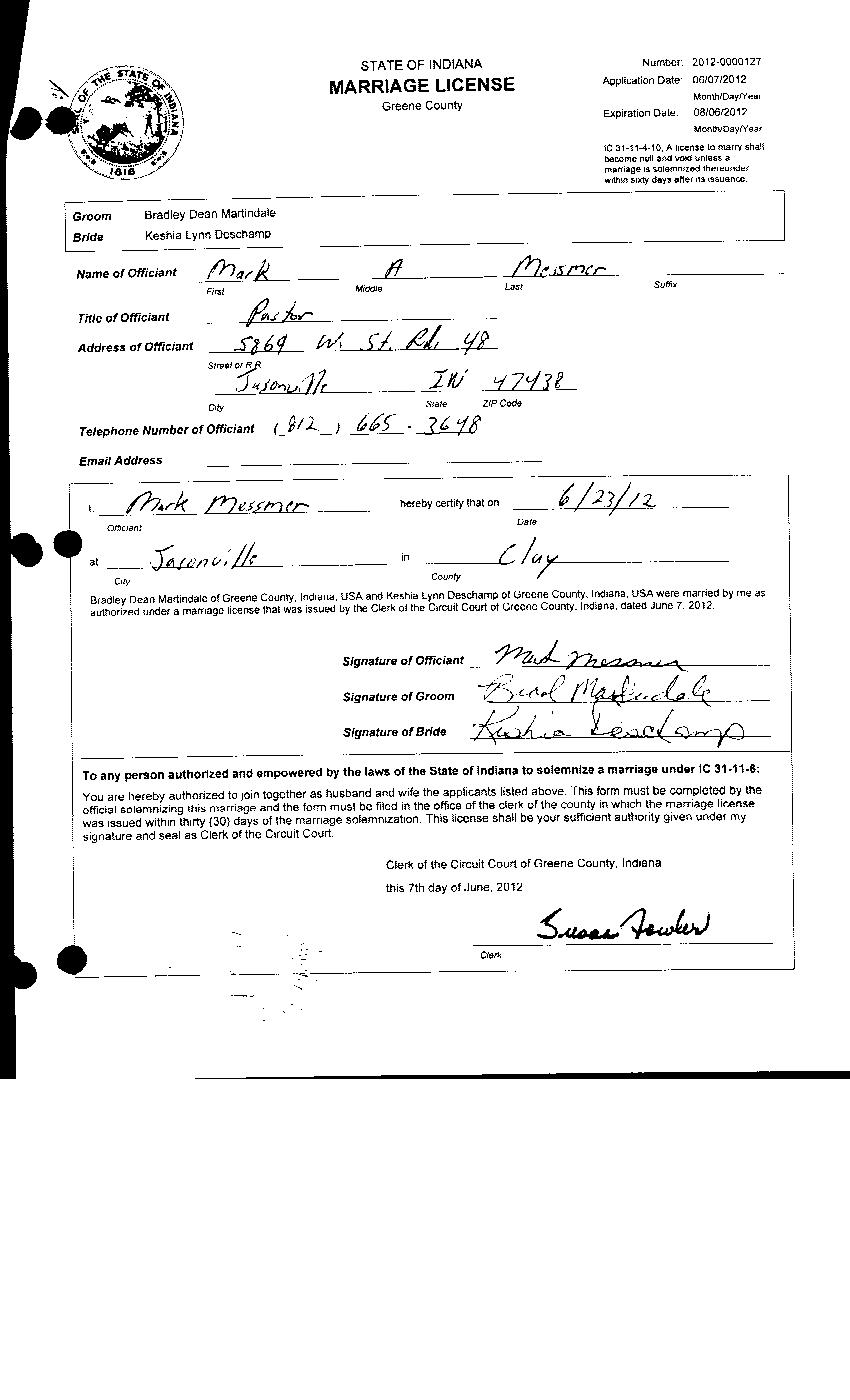 SEAL OF THE STATE OF INDIANA
1816
STATE OF INDIANA
MARRIAGE LICENSE
Greene County
Number: 2012-0000127
Application Date: 06/07/2012
Month/Day/Year
Expiration Date: 08/06/2012
Month/Day/Year
IC 31-11-4-10, A license to marry shall
become null and void unless a
marriage is solemnized thereunder
within sixty days after its issuance.
Groom Bradley Dean Martindale
Bride Keshia Lynn Deschamp
Name of Officiant Mark A Messmer
First Middle Last Suffix
Title of Officiant Pastor
Address of Officiant 5869 W. St. Rd. 48
Street or R.R.
Jasonville IN 47438
City State ZIP Code
Telephone Number of Officiant (812) 665-3648
Email Address
I, Mark Messmer hereby certify that on 6/23/12
Officiant Date
at Jasonville in Clay
City County
Bradley Dean Martindale of Greene County, Indiana, USA and Keshia Lynn Deschamp of Greene County, Indiana, USA were married by me as
authorized under a marriage license that was issued by the Clerk of the Circuit Court of Greene County, Indiana, dated June 7, 2012.
Signature of Officiant Mark Messmer
Signature of Groom Brad Martindale
Signature of Bride Keshia Deschamp
To any person authorized and empowered by the laws of the State of Indiana to solemnize a marriage under IC 31-11-6:
You are hereby authorized to join together as husband and wife the applicants listed above. This form must be completed by the
official solemnizing this marriage and the form must be filed in the office of the clerk of the county in which the marriage license
was issued within thirty (30) days of the marriage solemnization. This license shall be your sufficient authority given under my
signature and seal as Clerk of the Circuit Court.
Clerk of the Circuit Court of Greene County, Indiana
this 7th day of June, 2012
Susan Fowler
Clerk